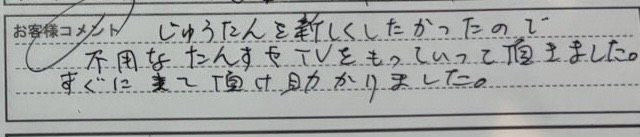 お客様コメント じゅうたんを新しくしたかったので
不用なたんすやTVをもっていって頂きました。
すぐに来て頂け助かりました。